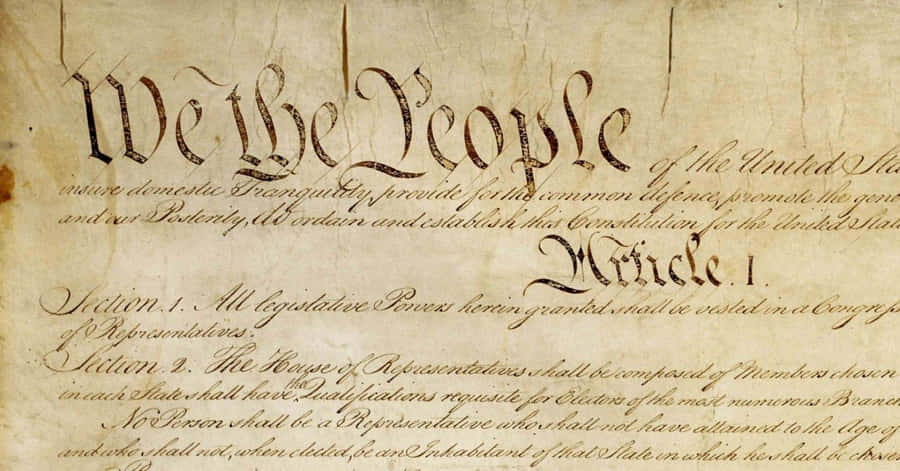 We the People of the United Sta
insure domestic Tranquility, provide for the common defence, promote the gene
and our Posterity, do ordain and establish this Constitution for the United State
Article. I.
Section. 1. All legislative Powers herein granted shall be vested in a Congress
of Representatives.
Section. 2. The House of Representatives shall be composed of Members chosen
in each State shall have the Qualifications requisite for Electors of the most numerous Branch
No Person shall be a Representative who shall not have attained to the Age of
and who shall not, when elected, be an Inhabitant of that State in which he shall be chosen